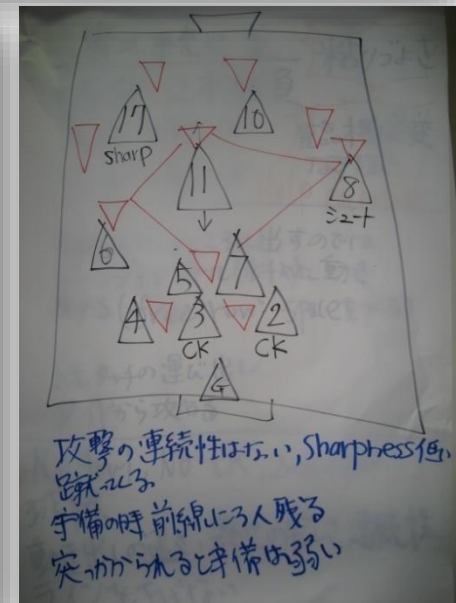 17
10
sharp
11
8
シュート
6
5
7
4
3
2
CK
CK
G
攻撃の連続性はない, Sharpness低い
蹴ってくる
守備の時 前線に3人残る
突っかかられると守備は弱い